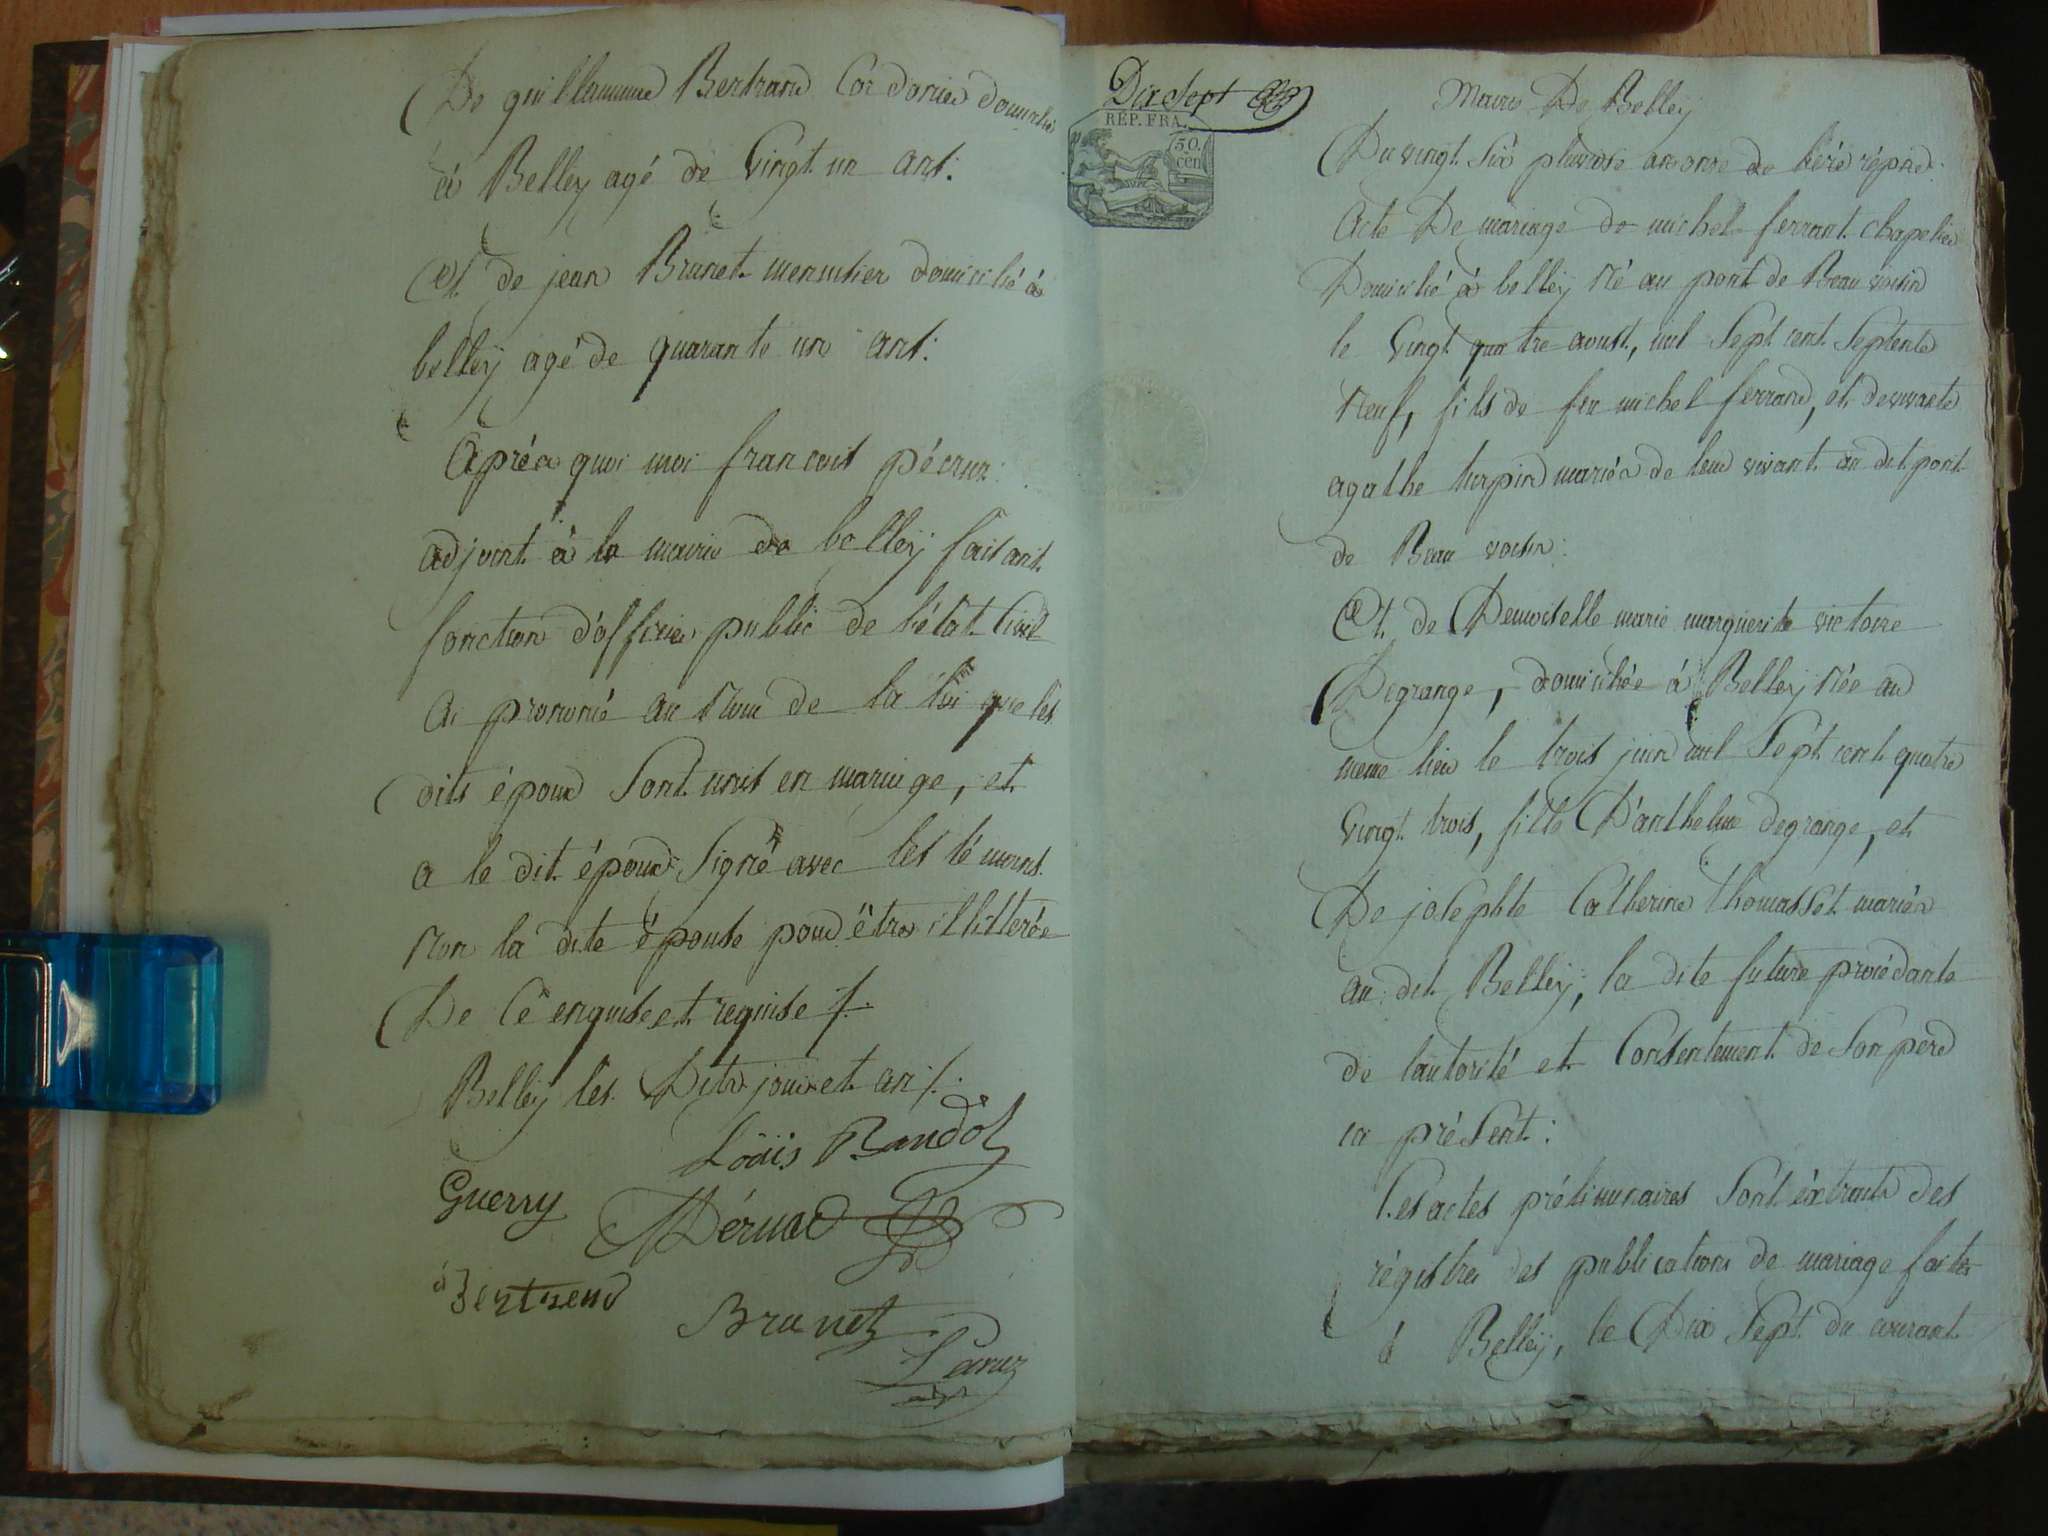 De guillaume Bertrand Cordonier domicilié
à Belley agé de Vingt un ans:
Et de jean Brunet menusier domicilié à
belleÿ agé de quarante un ans:
Après quoi moi francois
adjoint à la mairie de belleÿ faisant
fonction d'officier public de l'état Civil
ai prononcé au Nom de la loi que les
dits époux Sont unis en mariage, et
a le dit époux Signé avec les témoins
Non la dite épouse pour être illitterée
De Ce enquise et requise /.
Belleÿ les Dits jour et an /.
Loüis Baudot
Guerry
Bertrend
Brunet
Dix Sept
RÉP. FRA.
50.
cen
Mairie De Belleÿ
Du vingt Six pluviose an onze de
Acte De mariage de michel ferrant chapelier
Domicilié à belleÿ Né au pont de Beau voisin
le Vingt quatre aoust, mil Sept cent Septente
Neuf, fils de feu michel ferrand, et de vivante
agathe turpin mariés de leur vivant au dit pont
de Beau voisin:
Et de Demoiselle marie marguerite victoire
Degrange, domiciliée à Belleÿ Née au
meme lieu le trois juin mil Sept cent quatre
Vingt trois, fille D'anthelme degrange, et
De josephte Catherine thomasset mariés
au dit Belleÿ, la dite future procédante
de l'autorité et Consentement de Son pere
ca présent:
Les actes préliminaires Sont éxtraits des
régistres des publications de mariage faites
à Belleÿ, le Dix Sept du courant